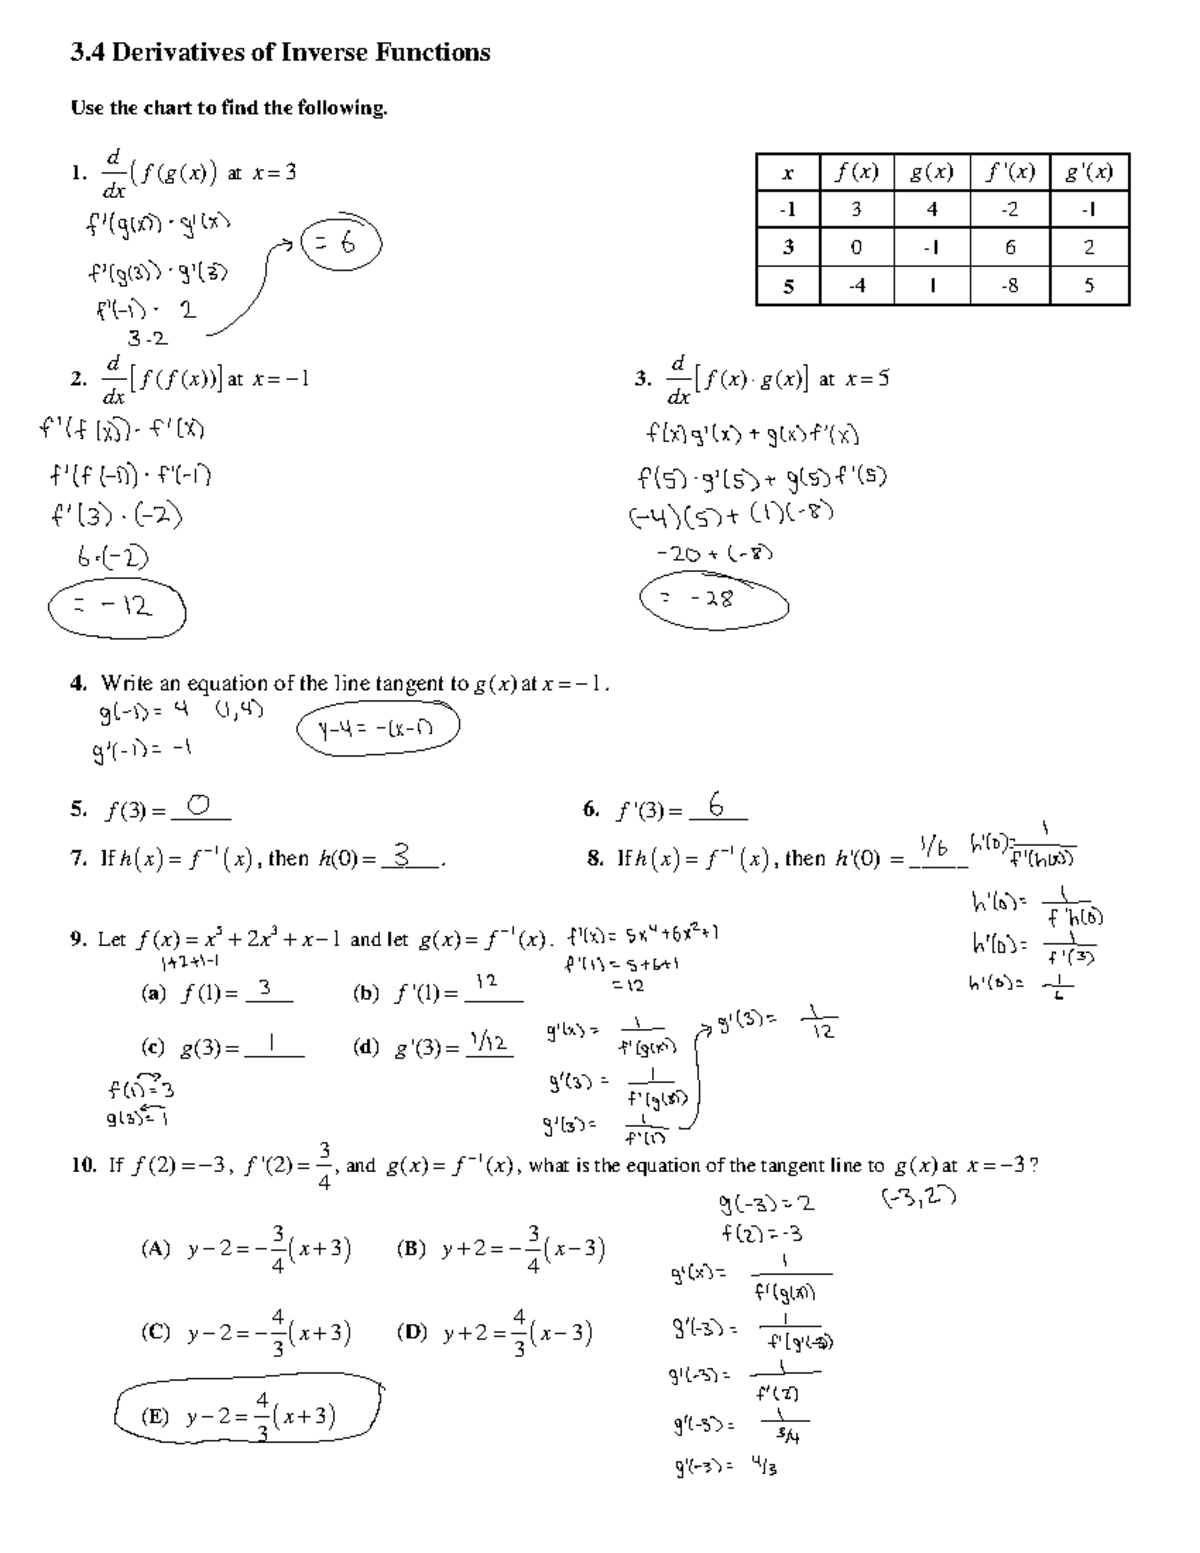 3.4 Derivatives of Inverse Functions
Use the chart to find the following.
1. d/dx (f(g(x)) at x = 3
f'(g(x)) · g'(x)
f'(g(3)) · g'(3)
f'(-1) · 2
3 · 2
= 6
x f(x) g(x) f'(x) g'(x)
-1 3 4 -2 -1
3 0 -1 6 2
5 -4 1 -8 5
2. d/dx [f(f(x))] at x = -1
f'(f(x)) · f'(x)
f'(f(-1)) · f'(-1)
f'(3) · (-2)
6 · (-2)
= -12
3. d/dx [f(x) · g(x)] at x = 5
f(x)g'(x) + g(x)f'(x)
f(5) · g'(5) + g(5)f'(5)
(-4)(5) + (1)(-8)
-20 + (-8)
= -28
4. Write an equation of the line tangent to g(x) at x = -1.
g(-1) = 4 (1,4)
g'(-1) = -1
y-4 = -(x-1)
5. f(3) = 0
6. f'(3) = 6
7. If h(x) = f⁻¹(x), then h(0) = 3.
8. If h(x) = f⁻¹(x), then h'(0) = 1/6
h'(0) = 1/f'(h(x))
h'(0) = 1/f'h(0)
h'(0) = 1/f'(3)
h'(0) = 1/6
9. Let f(x) = x⁵ + 2x³ + x - 1 and let g(x) = f⁻¹(x).
f'(x) = 5x⁴+6x²+1
1+2+1-1
f'(1) = 5+6+1
= 12
(a) f(1) = 3
(b) f'(1) = 12
(c) g(3) = 1
(d) g'(3) = 1/12
f(1) = 3
g(3) = 1
g'(x) = 1/f'(g(x))
g'(3) = 1/f'(g(3))
g'(3) = 1/f'(1)
g'(3) = 1/12
10. If f(2) = -3, f'(2) = 3/4, and g(x) = f⁻¹(x), what is the equation of the tangent line to g(x) at x = -3?
g(-3) = 2 (-3,2)
f(2) = -3
(A) y - 2 = -3/4(x + 3)
(B) y + 2 = -3/4(x - 3)
(C) y - 2 = -4/3(x + 3)
(D) y + 2 = 4/3(x - 3)
(E) y - 2 = 4/3(x + 3)
g'(x) = 1/f'(g(x))
g'(-3) = 1/f'(g'(-3))
g'(-3) = 1/f'(2)
g'(-3) = 1/3/4
g'(-3) = 4/3